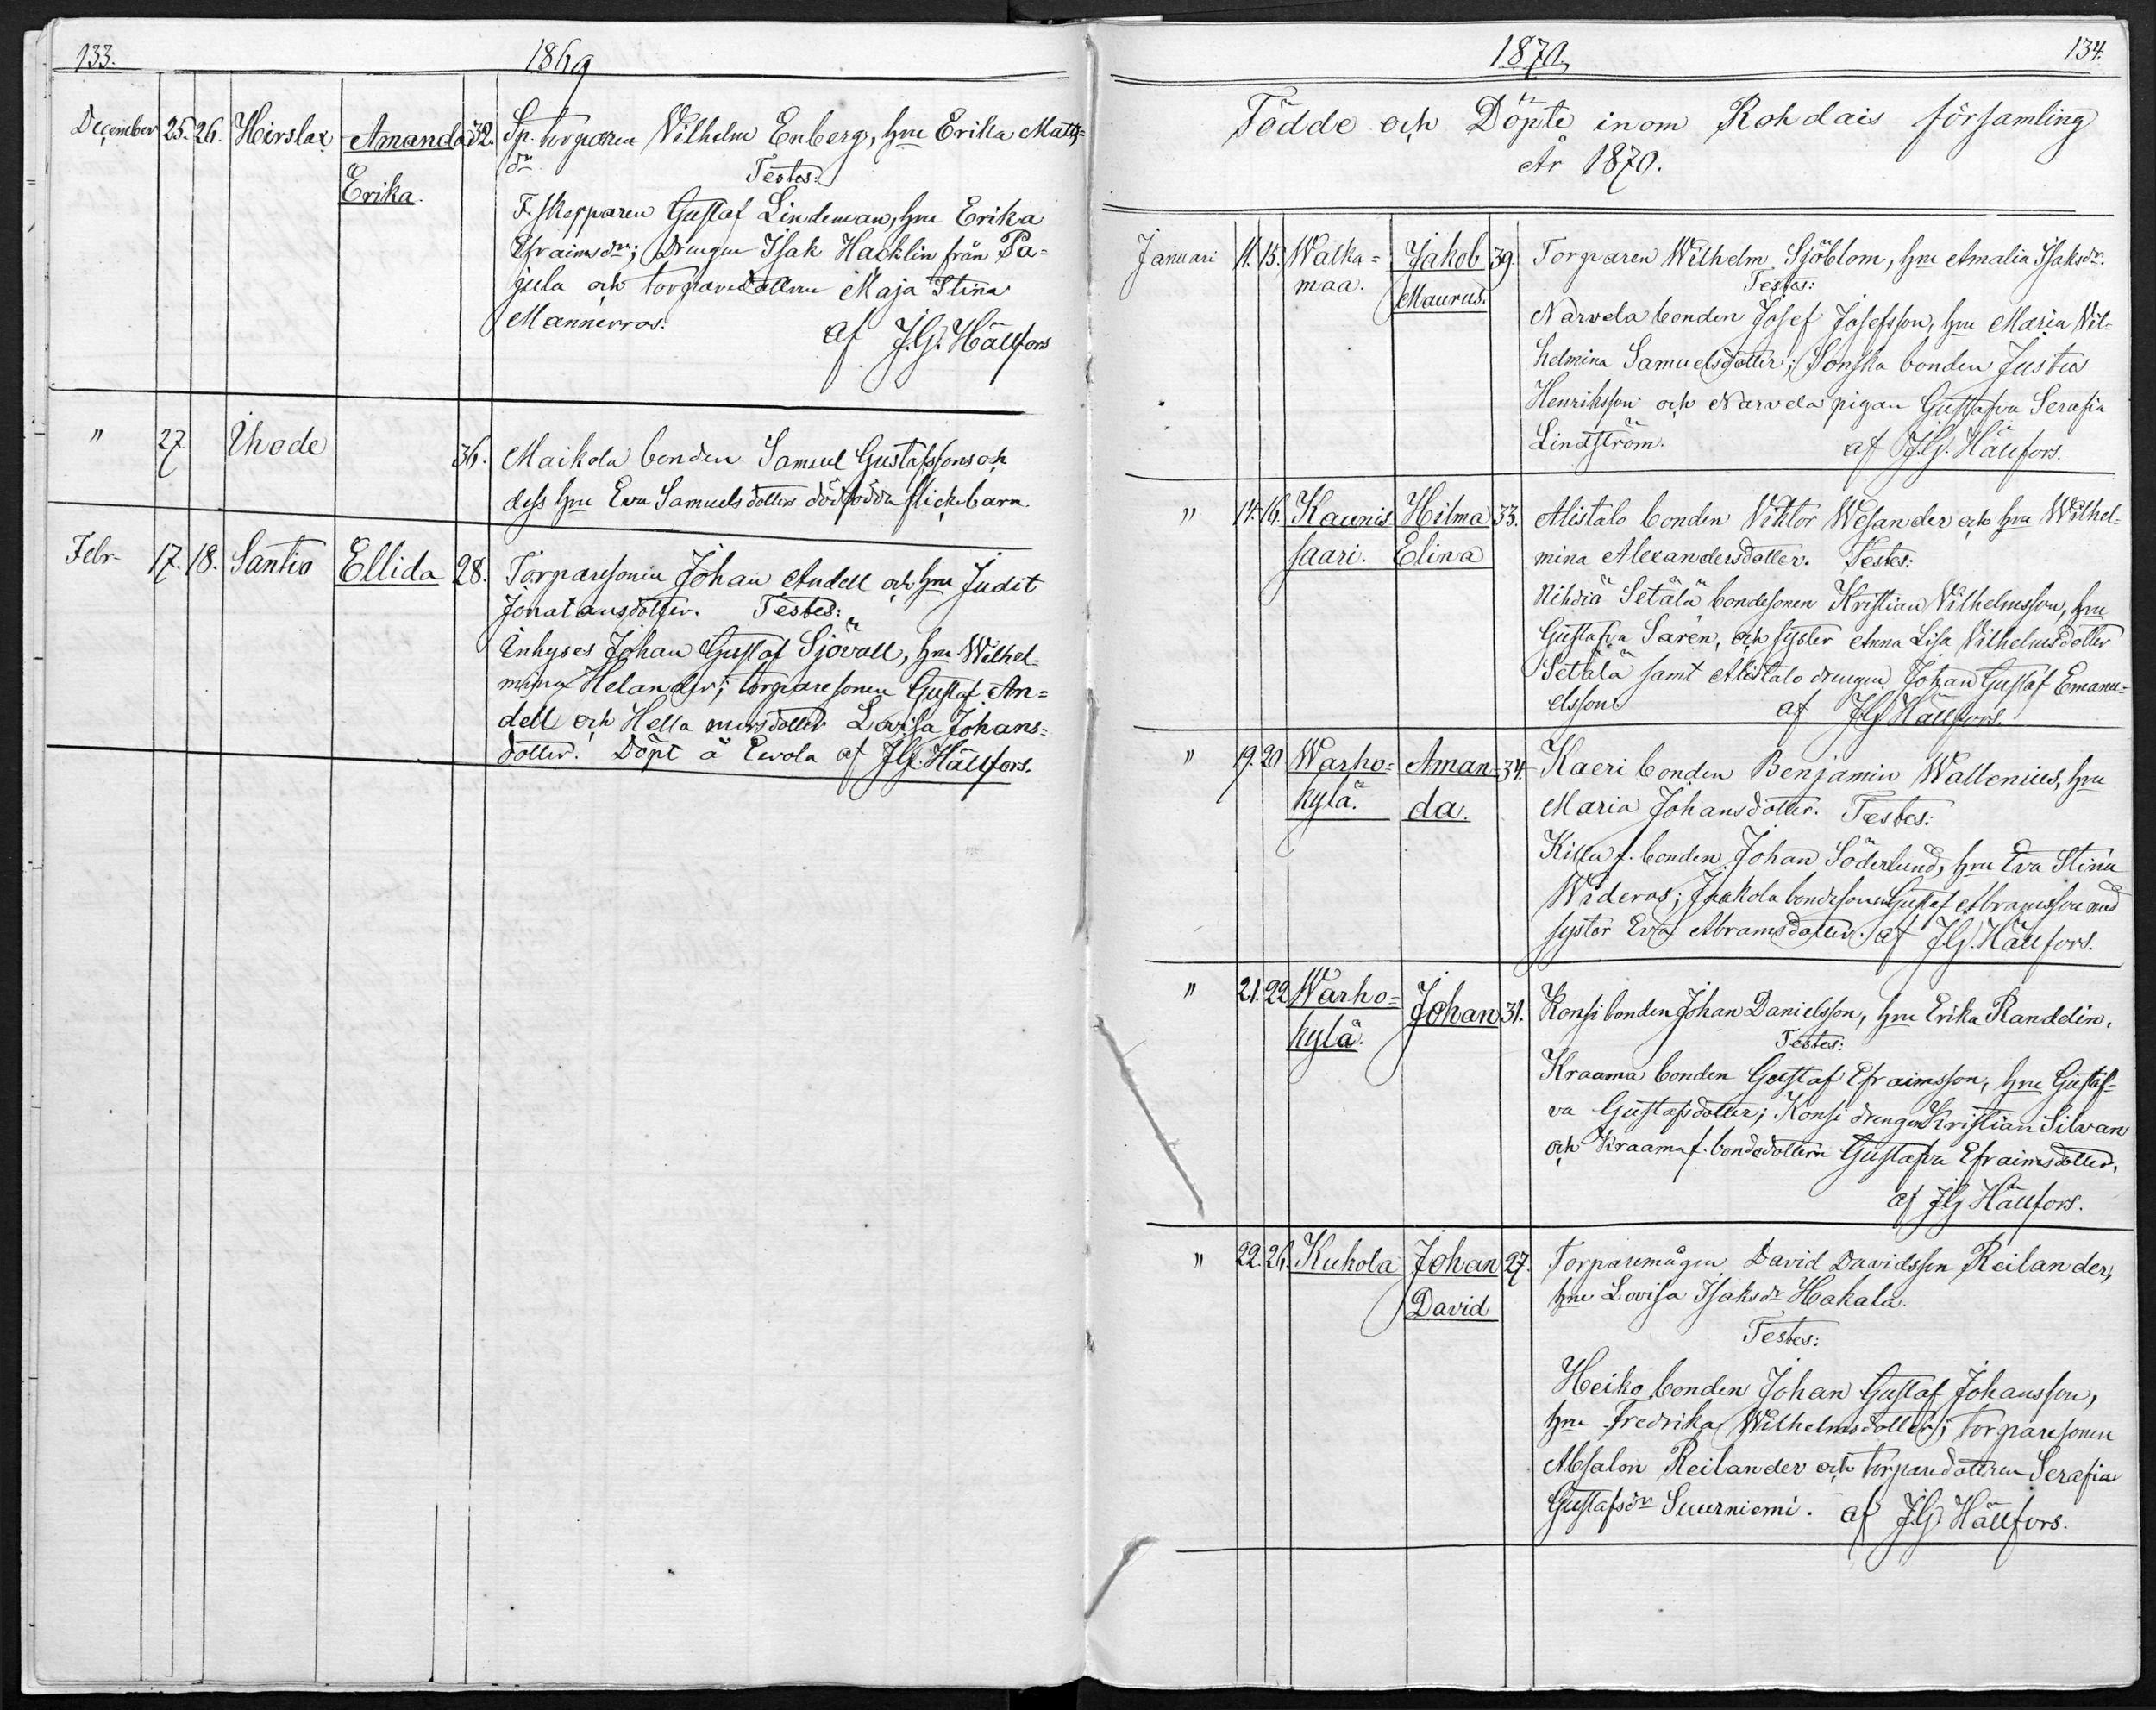 133.
1869
December 25. 26. Hirslax Amanda 32. Sp. torparen Vilhelm Enberg, hru Erika Matts=
dr.
Testes:
Erika.
F. skepparen Gustaf Lindeman, hru Erika
Efraimsdr; Drengen Isak Hacklin från Pa=
jula och torparedottren Maja Stina
Mannerros.
af J.G. Hällfors
" 27. Ihode 36. Maikola bonden Samuel Gustafssons och
dess hru Eva Samuelsdotters dödfödda flickebarn.
Febr. 17. 18. Santio Ellida 28. Torparesonen Johan Andell och hru Judit
Jonatansdotter. Testes:
Inhyses Johan Gustaf Sjövall, hru Wilhel=
mina Helander; torparesonen Gustaf An=
dell och Hella mursdotter Lovisa Johans=
dotter. Döpt å Ewola af J.G. Hällfors.
1870.
134.
Födde och Döpte inom Rohdais församling
År 1870.
Januari 11. 15. Walka= Jakob 39. Torparen Wilhelm Sjöblom, hru Amalia Isaksdr.
maa. Maurus. Testes:
Narvela bonden Josef Josefsson, hru Maria Vil=
helmina Samuelsdotter; Sonska bonden Justus
Henriksson och Narvela pigan Gustafva Serafia
Lindström. af J.G. Hällfors.
" 14. 16. Kaunis Hilma 33. Alistalo bonden Viktor Wesander och hru Wilhel=
saari. Elina mina Alexandersdotter. Testes:
Nihdiä Setälä bondesonen Kristian Vilhelmsson, hru
Gustafva Sarén, och syster Anna Lisa Vilhelmsdotter
Setälä samt Alistalo drengen Johan Gustaf Emanu=
elsson. af J.G. Hällfors.
" 19. 20 Warho= Aman= 34. Kaeri bonden Benjamin Wallenius, hru
kylä. da. Maria Johansdotter. Testes:
Killa f. bonden Johan Söderlund, hru Eva Stina
Wideros; Jaakola bondesonen Gustaf Abramsson med
syster Eva Abramsdotter. af J.G. Hällfors.
" 21. 22 Warho= Johan 31. Konsi bonden Johan Danielsson, hru Erika Randelin.
kylä. Testes:
Kraama bonden Gustaf Efraimsson, hru Gustaf=
va Gustafsdotter; Konsi drengen Kristian Silvan
och Kraama f. bondedottern Gustafva Efraimsdotter.
af J.G. Hällfors.
" 22. 26. Kukola Johan 27. Torparemågen David Davidsson Reilander,
David hru Lovisa Isaksdr Hakala.
Testes:
Heiko bonden Johan Gustaf Johansson,
hru Fredrika Wilhelmsdotter; torparesonen
Absalon Reilander och torparedottren Serafia
Gustafsdr Suurniemi. af J.G. Hällfors.